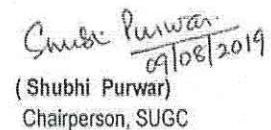 Shubhi Purwar.
09/08/2019
(Shubhi Purwar)
Chairperson, SUGC